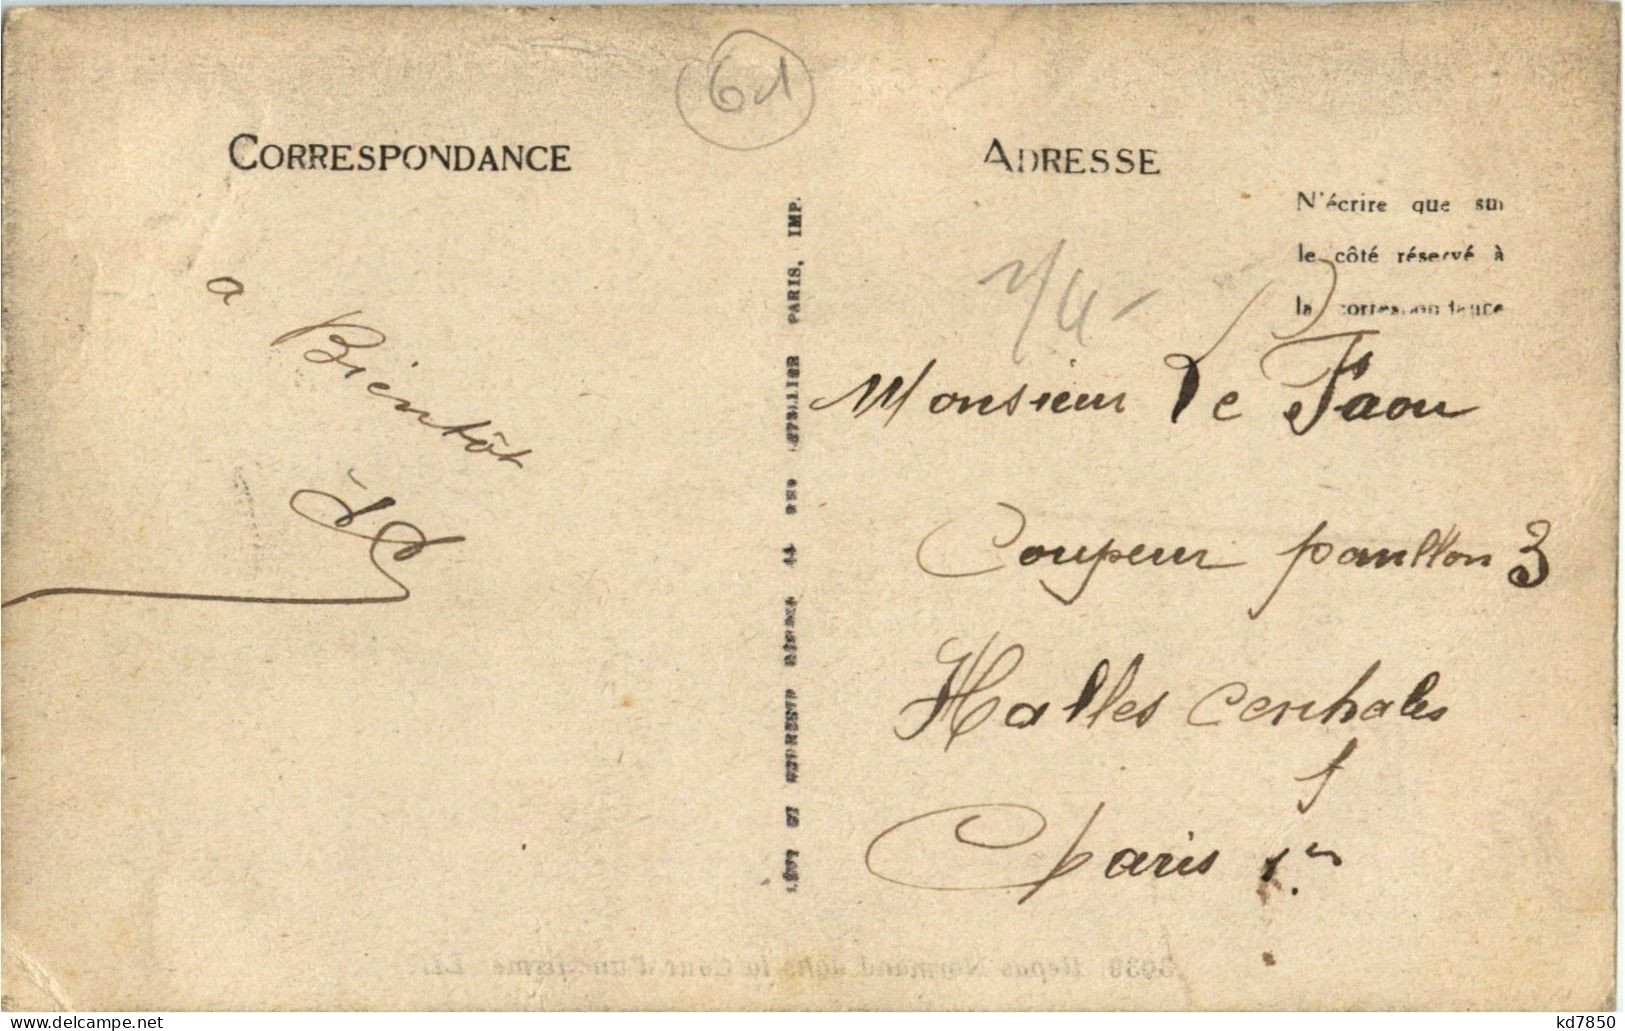 61
CORRESPONDANCE
ADRESSE
N'écrire que sur
le côté réservé à
la correspondance
a
Bientôt
LÉVY ET NEURDEIN RÉUNIS 44 RUE LETELLIER PARIS, IMP.
Monsieur Le Faou
Coupeur pavillon 3
Halles centrales
Paris 1er
Repas Normand dans la Cour d'une ferme LL.
kd7850